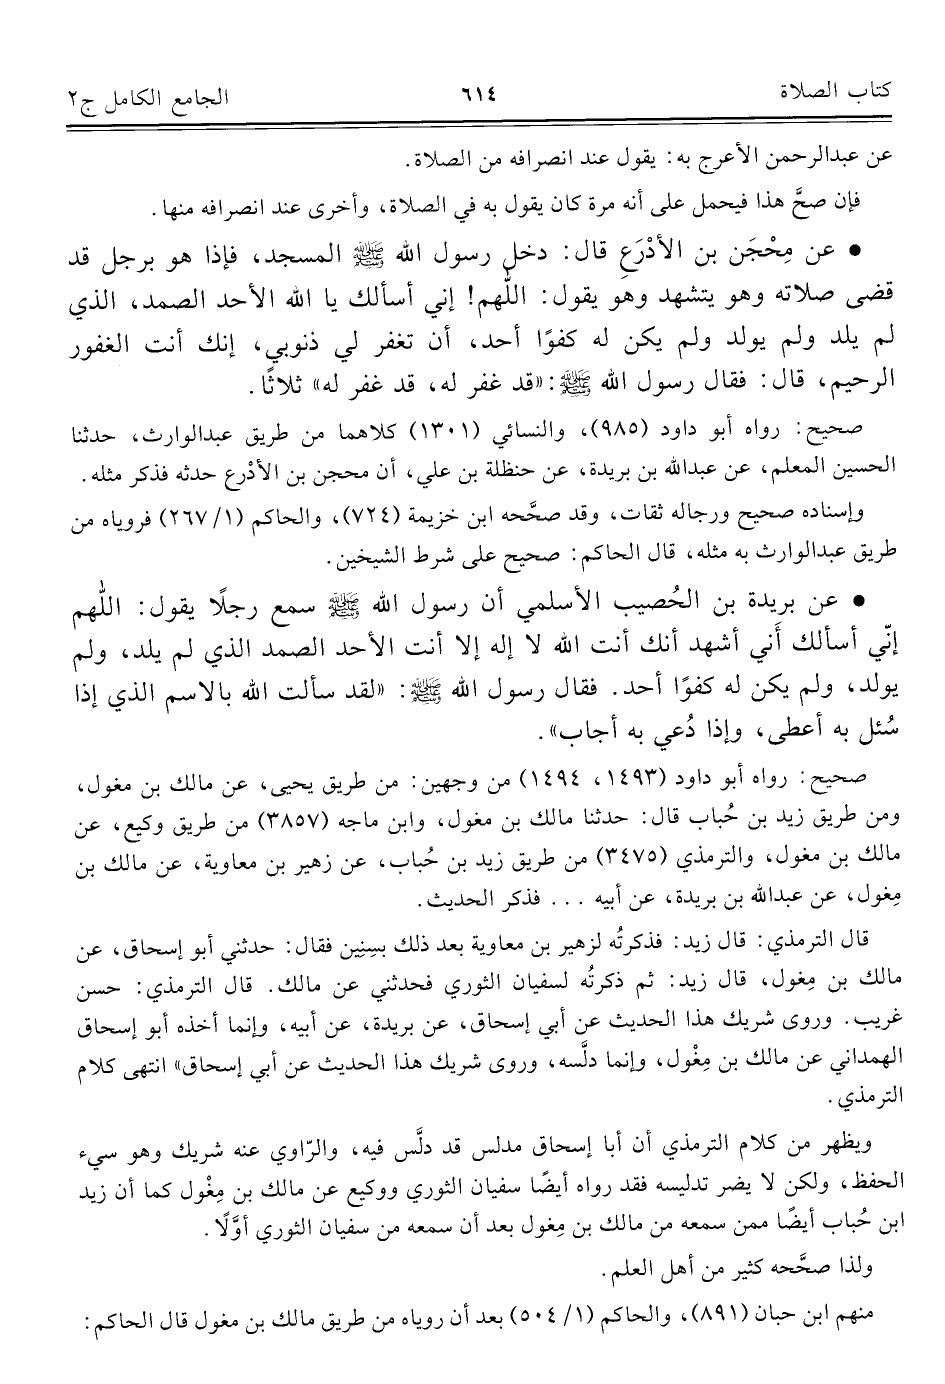 كتاب الصلاة ٦١٤ الجامع الكامل ج٢
عن عبدالرحمن الأعرج به: يقول عند انصرافه من الصلاة.
فإن صحَّ هذا فيحمل على أنه مرة كان يقول به في الصلاة، وأخرى عند انصرافه منها.
• عن مِحْجَن بن الأدْرَعِ قال: دخل رسول الله ﷺ المسجد، فإذا هو برجل قد
قضى صلاته وهو يتشهد وهو يقول: اللّٰهم! إني أسألك يا الله الأحد الصمد، الذي
لم يلد ولم يولد ولم يكن له كفوًا أحد، أن تغفر لي ذنوبي، إنك أنت الغفور
الرحيم، قال: فقال رسول الله ﷺ: «قد غفر له، قد غفر له» ثلاثًا.
صحيح: رواه أبو داود (٩٨٥)، والنسائي (١٣٠١) كلاهما من طريق عبدالوارث، حدثنا
الحسين المعلم، عن عبدالله بن بريدة، عن حنظلة بن علي، أن محجن بن الأدْرع حدثه فذكر مثله.
وإسناده صحيح ورجاله ثقات، وقد صحَّحه ابن خزيمة (٧٢٤)، والحاكم (١/ ٢٦٧) فروياه من
طريق عبدالوارث به مثله، قال الحاكم: صحيح على شرط الشيخين.
• عن بريدة بن الحُصيب الأسلمي أن رسول الله ﷺ سمع رجلًا يقول: اللّٰهم
إنّي أسألك أَني أشهد أنك أنت الله لا إله إلا أنت الأحد الصمد الذي لم يلد، ولم
يولد، ولم يكن له كفوًا أحد. فقال رسول الله ﷺ: «لقد سألت الله بالاسم الذي إذا
سُئل به أعطى، وإذا دُعي به أجاب».
صحيح: رواه أبو داود (١٤٩٣، ١٤٩٤) من وجهين: من طريق يحيى، عن مالك بن مغول،
ومن طريق زيد بن حُباب قال: حدثنا مالك بن مغول، وابن ماجه (٣٨٥٧) من طريق وكيع، عن
مالك بن مغول، والترمذي (٣٤٧٥) من طريق زيد بن حُباب، عن زهير بن معاوية، عن مالك بن
مِغول، عن عبدالله بن بريدة، عن أبيه ... فذكر الحديث.
قال الترمذي: قال زيد: فذكرتُه لزهير بن معاوية بعد ذلك بسِنِين فقال: حدثني أبو إسحاق، عن
مالك بن مِغول، قال زيد: ثم ذكرتُه لسفيان الثوري فحدثني عن مالك. قال الترمذي: حسن
غريب. وروى شريك هذا الحديث عن أبي إسحاق، عن بريدة، عن أبيه، وإنما أخذه أبو إسحاق
الهمداني عن مالك بن مِغْول، وإنما دلَّسه، وروى شريك هذا الحديث عن أبي إسحاق» انتهى كلام
الترمذي.
ويظهر من كلام الترمذي أن أبا إسحاق مدلس قد دلَّس فيه، والرّاوي عنه شريك وهو سيء
الحفظ، ولكن لا يضر تدليسه فقد رواه أيضًا سفيان الثوري ووكيع عن مالك بن مِغْول كما أن زيد
ابن حُباب أيضًا ممن سمعه من مالك بن مِغول بعد أن سمعه من سفيان الثوري أوَّلًا.
ولذا صحَّحه كثير من أهل العلم.
منهم ابن حبان (٨٩١)، والحاكم (١/ ٥٠٤) بعد أن روياه من طريق مالك بن مغول قال الحاكم: